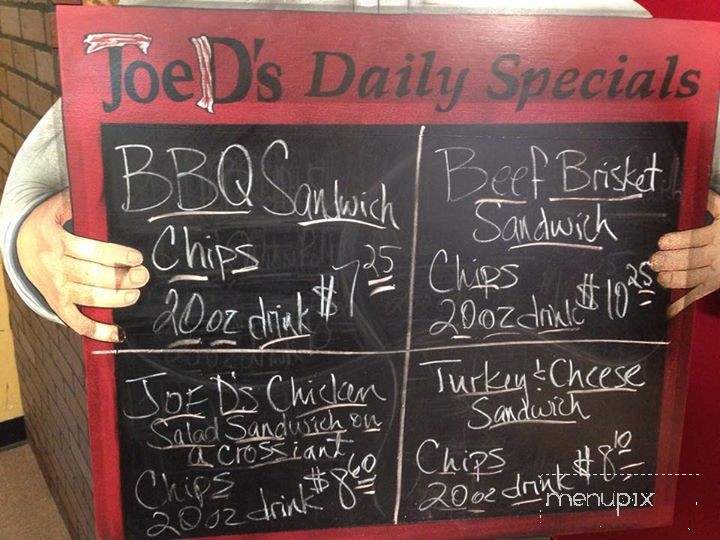 Joe D's Daily Specials
BBQ Sandwich
Chips
20 oz drink $7.25
Beef Brisket
Sandwich
Chips
20 oz drink $10.25
Joe D's Chicken
Salad Sandwich on
a crossiant
Chips
20 oz drink $8.60
Turkey & Cheese
Sandwich
Chips
20 oz drink $8.10
menupix